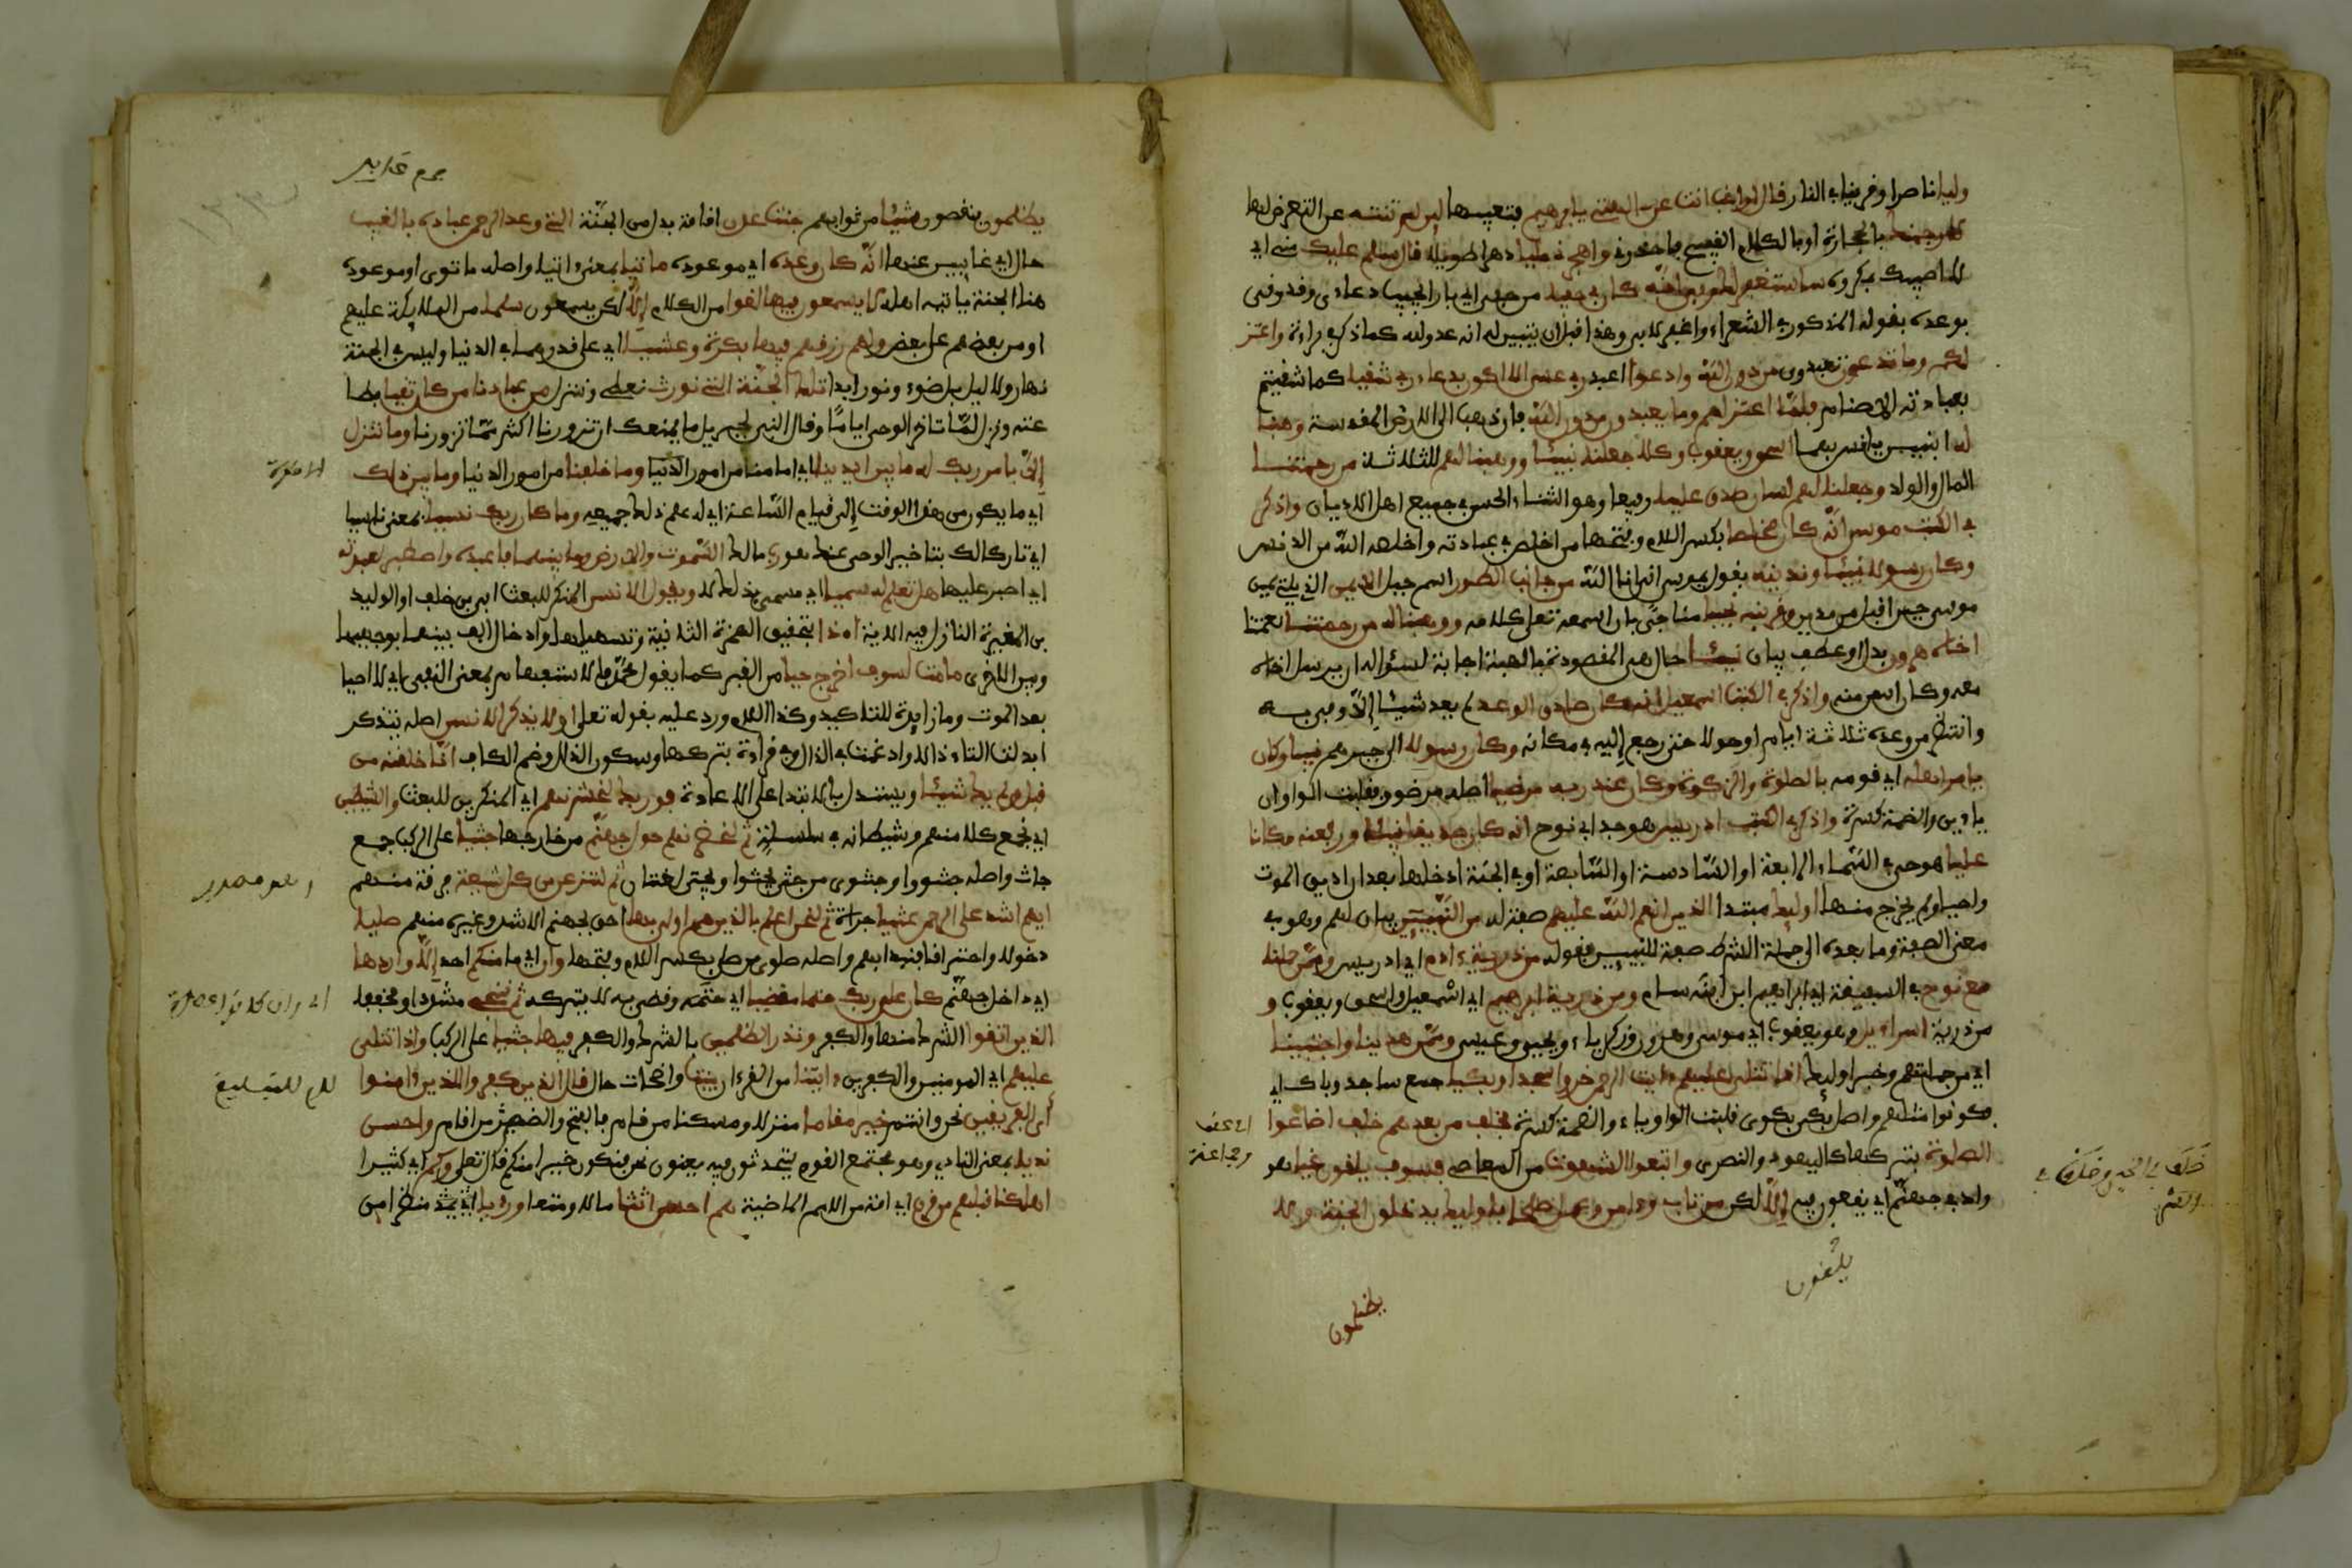 وليا ناصرا وقرينا في النار قال اراغب انت عن الهتي يابرهيم فتعيبها لين لم تنته عن التعرض لها
لارجمنك بالحجارة او بالكلام القبيح فاحذرني واهجرني مليا دهرا طويلا قال سلم عليك مني اي
لا اصيبك بمكروه ساستغفر لك ربي انه كان بي حفيا من حفي اي بارا فيجيب دعاءي وقد وفى
بوعده بقوله المذكور في الشعراء واغفر لابي وهذا قبل ان يتبين له انه عدو لله كما ذكر في براءة واعتز
لكم وما تدعون تعبدون من دون الله وادعوا اعبد ربي عسى الا اكون بدعاء ربي شقيا كما شقيتم
بعبادته الاصنام فلما اعتزلهم وما يعبدون من دون الله بان ذهب الى الارض المقدسة وهبنا
له ابنين يانس بهما اسحق ويعقوب وكلا جعلنا نبيئا ووهبنا لهم للثلاثة من رحمتنا
المال والولد وجعلنا لهم لسان صدق عليا رفيعا وهو الثناء الحسن في جميع اهل الاديان واذكر
في الكتب موسى انه كان مخلصا بكسر اللام وفتحها من اخلص في عبادته واخلصه الله من الدنس
وكان رسولا نبيئا وندينه بقول يموسى اني انا الله من جانب الطور اسم جبل الايمن الذي يلي يمين
موسى حين اقبل من مدين وقربنه نجيا مناجيا بان اسمعه تعلى كلامه ووهبنا له من رحمتنا نعمتنا
اخاه هرون بدل او عطف بيان نبيئا حال هي المقصودة بالهبة اجابة لسؤاله ان يرسل اخاه
معه وكان اسن منه واذكر في الكتب اسمعيل انه كان صادق الوعد لم يعد شيئا الا وفى به
وانتظر من وعده ثلاثة ايام او حولا حتى رجع إليه في مكانه وكان رسولا الى جرهم نبيا وكان
يامر اهله اي قومه بالصلوة والزكوة وكان عند ربه مرضيا اصله مرضوو قلبت الواوان
ياءين والضمة كسرة واذكر في الكتب ادريس هو جد ابي نوح انه كان صديقا نبيئا ورفعنه مكانا
عليا هو حي في السماء الرابعة او السادسة او السابعة او في الجنة ادخلها بعد ان اذيق الموت
واحيي ولم يخرج منها اوليك مبتدا الذين انعم الله عليهم صفة له من النبيين بيان لهم وهو في
معنى الصفة وما بعده الى جملة الشرط صفة للنبيين فقوله من ذرية ءادم اي ادريس وممن حملنا
مع نوح في السفينة اي ابراهيم ابن ابنه سام ومن ذرية ابرهيم اي اسمعيل واسحق ويعقوب و
من ذرية اسراءيل وهو يعقوب اي موسى وهرون وزكرياء ويحيى وعيسى وممن هدينا واجتبينا
اي من جملتهم وخبر اوليك اذا تتلى عليهم ءايت الرحمن خروا سجدا وبكيا جمع ساجد وباك اي
فكونوا مثلهم واصل بكي بكوى قلبت الواو ياء والضمة كسرة فخلف من بعدهم خلف اضاعوا
الصلوة بتركها كاليهود والنصرى واتبعوا الشهوت من المعاصي فسوف يلقون غيا هو
واد في جهنم اي يقعون فيه إلا لكن من تاب وءامن وعمل صلحا فاوليك يدخلون الجنة ولا
يظلمون
خلف في الخير وخلف في
الشر
يظلمون ينقصون شيئا من ثوابهم جنت عدن اقامة بدل من الجنة التي وعد الرحمن عباده بالغيب
حال اي غايبين عنها انه كان وعده اي موعوده ماتيا بمعنى اتيا واصله ماتوى او موعوده
هنا الجنة ياتيه اهله لا يسمعون فيها لغوا من الكلام إلا لكن يسمعون سلما من الملايكة عليهم
او من بعضهم على بعض ولهم رزقهم فيها بكرة وعشيا اي على قدرهما في الدنيا وليس في الجنة
نهار ولا ليل بل ضوء ونور ابدا تلك الجنة التي نورث نعطي وننزل من عبادنا من كان تقيا بطا
عته ونزل لما تاخر الوحي اياما وقال النبي لجبريل ما يمنعك ان تزورنا اكثر مما تزورنا وما نتنزل
إلا بامر ربك له ما بين ايدينا اي امامنا من امور الدنيا وما خلفنا من امور الدنيا وما بين ذلك
اي ما يكون من هذا الوقت إلى قيام الساعة اي له علم ذلك جميعه وما كان ربك نسيا بمعنى ناسيا
اي تاركا لك بتاخير الوحي عنك هو رب مالك السموت والارض وما بينهما فاعبده واصطبر لعبدته
اي اصبر عليها هل تعلم له سميا اي مسمى بذلك لا ويقول الانسن المنكر للبعث ابي بن خلف او الوليد
بن المغيرة النازل فيه الاية اءذا بتحقيق الهمزة الثانية وتسهيلها وادخال الف بينها بوجهيها
وبين الاخرى ما مت لسوف اخرج حيا من القبر كما يقول محمد فالاستفهام بمعنى النفي اي لا احيا
بعد الموت وما زايدة للتاكيد وكذا اللام ورد عليه بقوله تعلى اولا يذكر الانسن اصله يتذكر
ابدلت التاء ذالا وادغمت في الذال وفي قراءة بتركها وسكون الذال وضم الكاف انا خلقنه من
قبل ولم يك شيئا ويستدل بالابتداء على الاعادة فوربك لنحشرنهم اي المنكرين للبعث والشيطين
اي نجمع كلا منهم وشيطانه في سلسلة ثم لنحضرنهم حول جهنم من خارجها جثيا على الركب جمع
جاث واصله جثووا وجثوى من جثى يجثوا ويجثى لغتان ثم لننزعن من كل شيعة فرقة منهم
ايهم اشد على الرحمن عتيا جراة ثم لنحن اعلم بالذين هم اولى بها احق بجهنم الاشد وغيره منهم صليا
دخولا واحتراقا فنبدا بهم واصله صلوى من صلي بكسر اللام وفتحها وان اي ما منكم احد إلا واردها
اي داخل جهنم كان على ربك حتما مقضيا اي حتمه وقضى به لا يتركه ثم ننجي مشددا ومخففا
الذين اتقوا الشرك منها والكفر ونذر الظلمين بالشرك والكفر فيها جثيا على الركب واذا تتلى
عليهم اي المومنين والكفرين ءايتنا من القرءان بينت واضحات حال قال الذين كفروا للذين ءامنوا
أي الفريقين نحن وانتم خير مقاما منزلا ومسكنا من قام بالفتح والضم من اقام واحسن
نديا بمعنى النادي وهو مجتمع القوم يتحدثون فيه يعنون نحن فنكون خيرا منكم قال تعلى وكم اي كثيرا
اهلكنا قبلهم من قرن اي امة من الامم الماضية هم احسن اثثا مالا ومتعا ورءيا